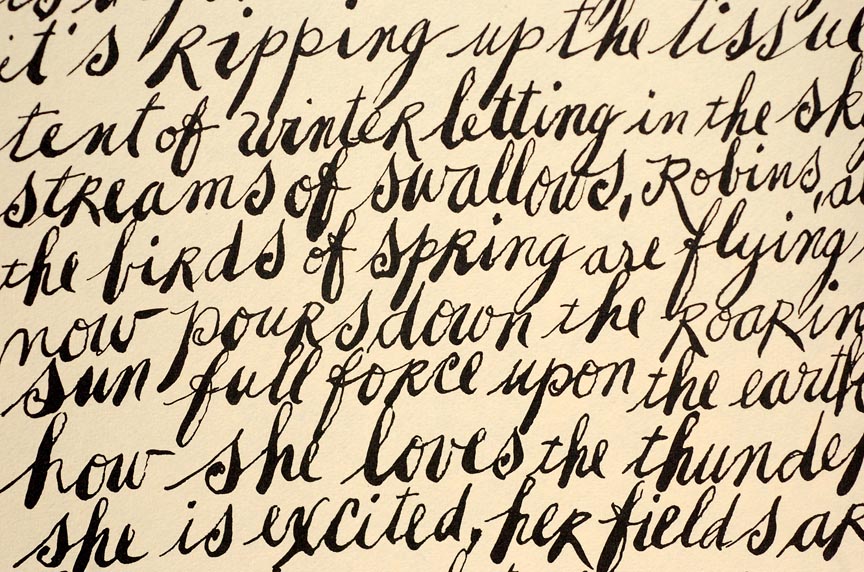 it's Ripping up the tissue
tent of winter letting in the
streams of swallows, Robins,
the birds of spring are flying
now pours down the Roaring
sun full force upon the earth
how she loves the thunder
she is excited, her fields